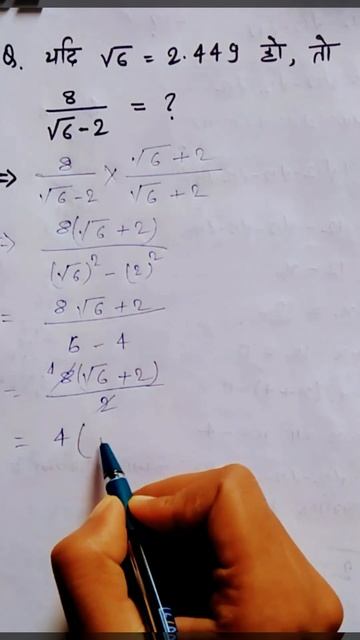 Q. यदि √6 = 2.449 हो, तो
8/(√6-2) = ?
=> 8/(√6-2) × (√6+2)/(√6+2)
=> 8(√6+2)/((√6)² - (2)²)
= 8√6+2/(6-4)
= 4 8(√6+2)/2
= 4(